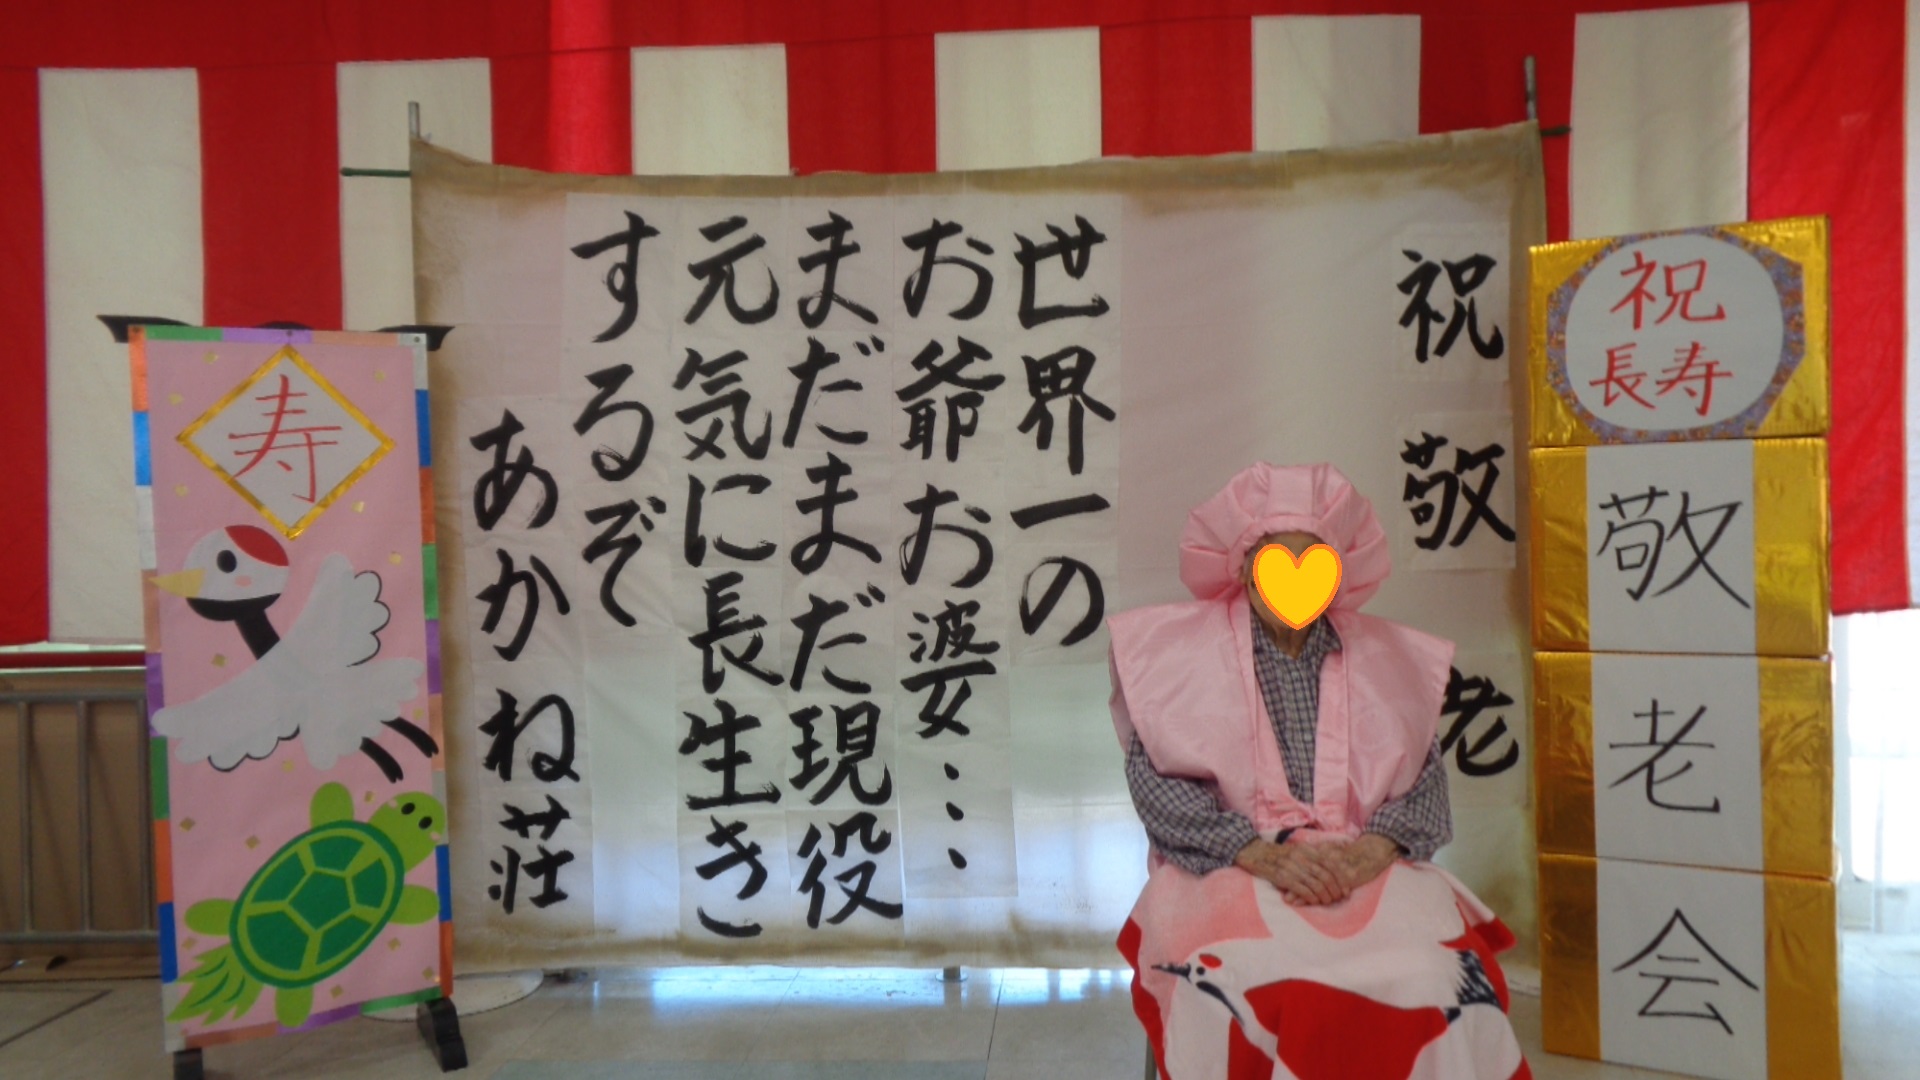 祝敬老
世界一の
お爺お婆・・・
まだまだ現役
元気に長生き
するぞ
あかね荘
祝
長寿
敬老会
寿